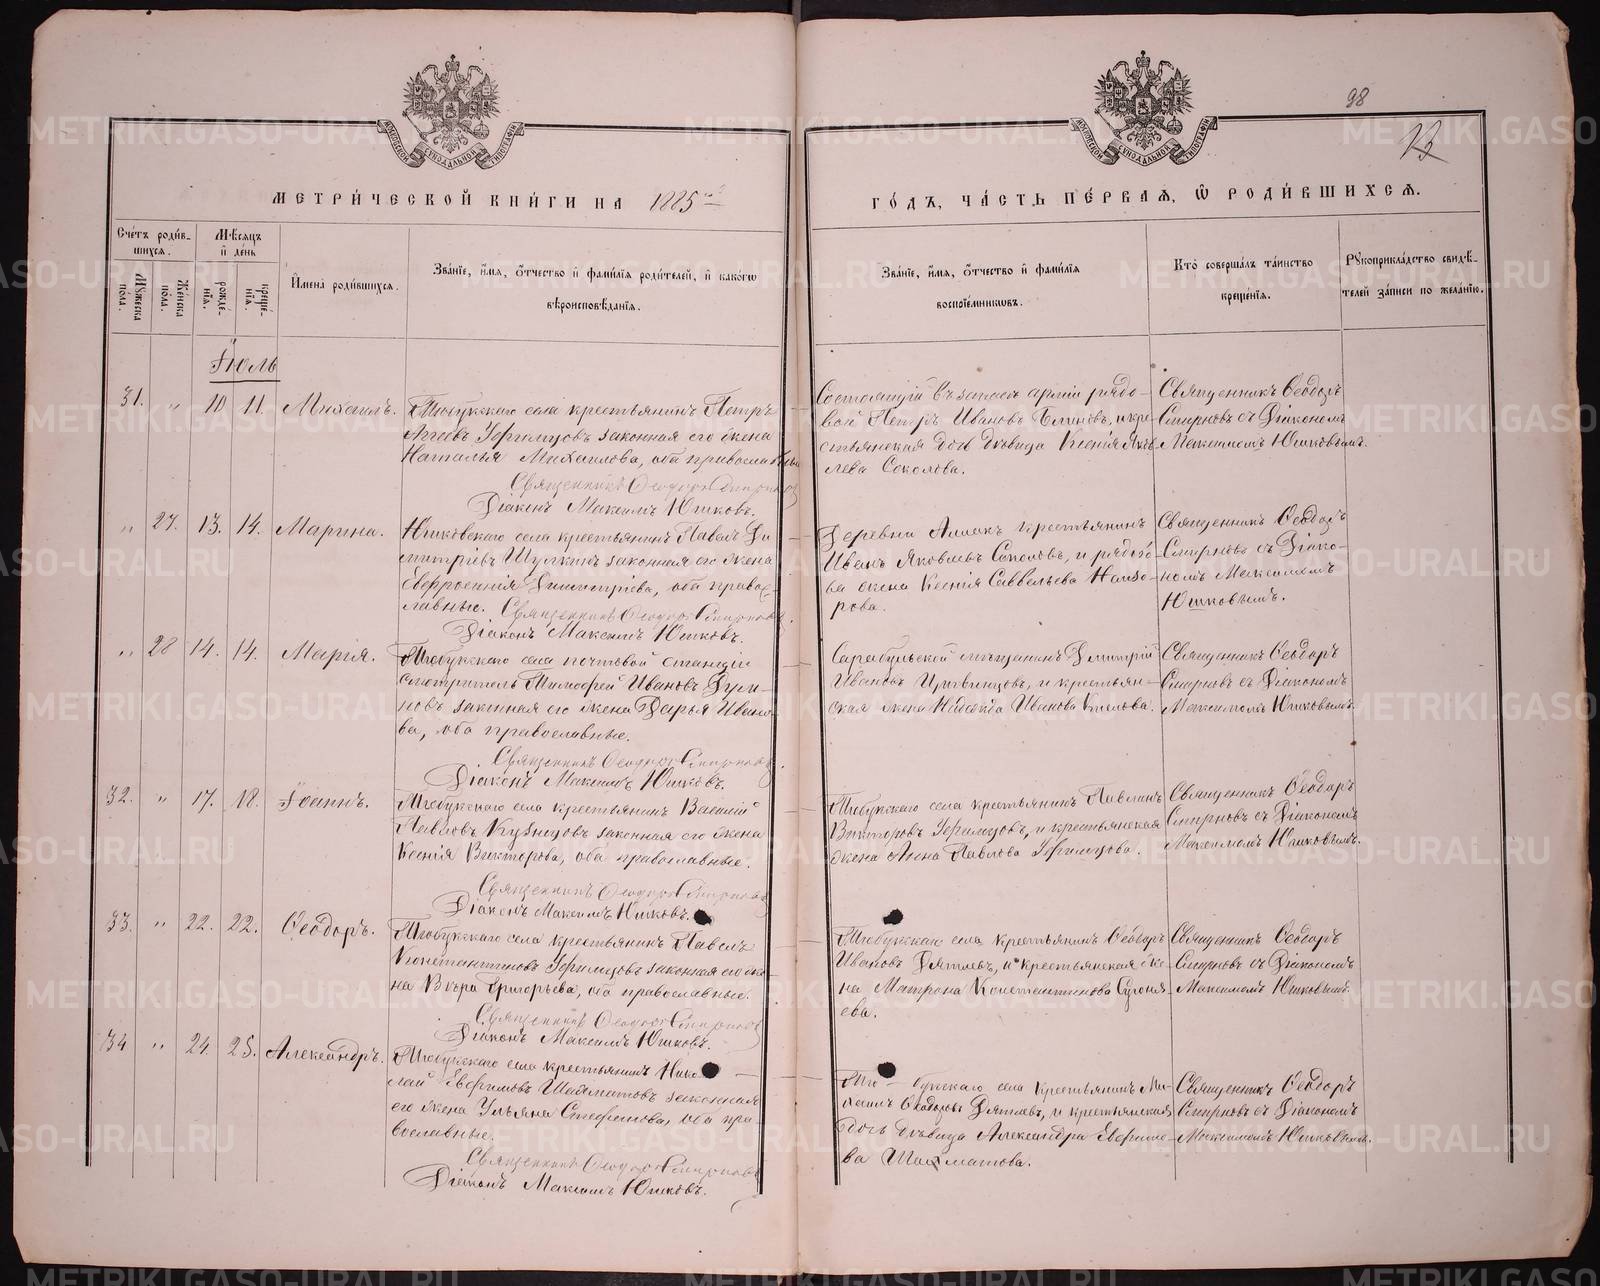 98
13
МОСКОВСКОЙ СѴНОДАЛЬНОЙ ТИПОГРАФІИ
МОСКОВСКОЙ СѴНОДАЛЬНОЙ ТИПОГРАФІИ
МЕТРИ́ЧЕСКОЙ КНИ́ГИ НА 1885й
ГО́ДЪ, ЧА́СТЬ ПЕ́РВАѦ, Ѽ РОДИ́ВШИХСѦ.
Сче́тъ роди́в-
шихсѧ.
Мꙋжеска по́ла.
Же́нска по́ла.
Мѣ́сѧцъ
и҆ де́нь
рожде́-
нїѧ.
креще́-
нїѧ.
И҆мена̀ роди́вшихсѧ.
Зва́нїе, и҆́мѧ, ѻ҆́тчество и҆ фами́лїѧ роди́телей, и҆ како́гѡ
вѣроисповѣ́данїѧ.
Зва́нїе, и҆́мѧ, ѻ҆́тчество и҆ фами́лїѧ
воспрїе́мниковъ.
Кто̀ соверша́лъ та́инство
креще́нїѧ.
Рꙋкоприкла́дство свидѣ́-
телей за́писи по жела́нїю.
Іюль
31. " 10. 11. Михаилъ.
Тюбукскаго села крестьянинъ Петръ
Агеевъ Уфимцовъ законная его жена
Наталья Михаилова, оба православные
Священникъ Ѳеодоръ Смирновъ
Діаконъ Максимъ Юшковъ.
Состоящій въ запасѣ арміи рядо-
вой Петръ Ивановъ и кре-
стьянская дочь дѣвица Ксенія Яков-
лева Соколова.
Священникъ Ѳеодоръ
Смирновъ съ Діакономъ
Максимомъ Юшковымъ.
" 27. 13. 14. Марина.
Юшковскаго села крестьянинъ Павелъ Ди-
митріевъ законная его жена
Евфросинія Димитріева, оба правос-
лавные. Священникъ Ѳеодоръ Смирновъ
Діаконъ Максимъ Юшковъ.
Деревни Аллакъ крестьянинъ
Иванъ Яковлевъ Соколовъ, и рядово-
ва жена Ксенія Саввельева Назо-
рова.
Священникъ Ѳеодоръ
Смирновъ съ Діако-
номъ Максимомъ
Юшковымъ.
" 28 14. 14. Марія.
Тюбукскаго села почтовой станціи
смотритель Тимофей Ивановъ
законная его жена Дарья Ивано-
ва, оба православные.
Священникъ Ѳеодоръ Смирновъ
Діаконъ Максимъ Юшковъ.
Сарапульской мѣщанинъ Димитрій
Ивановъ и крестьян-
ская жена Надежда Иванова
Священникъ Ѳеодоръ
Смирновъ съ Діакономъ
Максимомъ Юшковымъ.
32. " 17. 18. Іоаннъ.
Тюбукскаго села крестьянинъ Василій
Павловъ Кузнецовъ законная его жена
Ксенія Викторова, оба православные.
Священникъ Ѳеодоръ Смирновъ
Діаконъ Максимъ Юшковъ.
Тюбукскаго села крестьянинъ Павлинъ
Викторовъ Уфимцовъ, и крестьянская
жена Анна Павлова Уфимцова.
Священникъ Ѳеодоръ
Смирновъ съ Діакономъ
Максимомъ Юшковымъ.
33. " 22. 22. Ѳеодоръ.
Тюбукскаго села крестьянинъ Павелъ
Константиновъ Уфимцовъ законная его же-
на Вѣра Григорьева, оба православные.
Священникъ Ѳеодоръ Смирновъ
Діаконъ Максимъ Юшковъ.
Тюбукскаго села крестьянинъ Ѳеодоръ
Ивановъ Дятлевъ, и крестьянская же-
на Матрона Константинова Сугоня-
ева.
Священникъ Ѳеодоръ
Смирновъ съ Діакономъ
Максимомъ Юшковымъ.
34 " 24. 25. Александръ.
Тюбукскаго села крестьянинъ Нико-
лай Евфимовъ Шахматовъ законная
его жена Ульяна Стефанова, оба пра-
вославные.
Священникъ Ѳеодоръ Смирновъ
Діаконъ Максимъ Юшковъ.
Тю-букскаго села крестьянинъ Ми-
хаилъ Ѳеодоровъ Дятлевъ, и крестьянская
дочь дѣвица Александра Евфимо-
ва Шахматова.
Священникъ Ѳеодоръ
Смирновъ съ Діакономъ
Максимомъ Юшковымъ.
METRIKI.GASO-URAL.RU